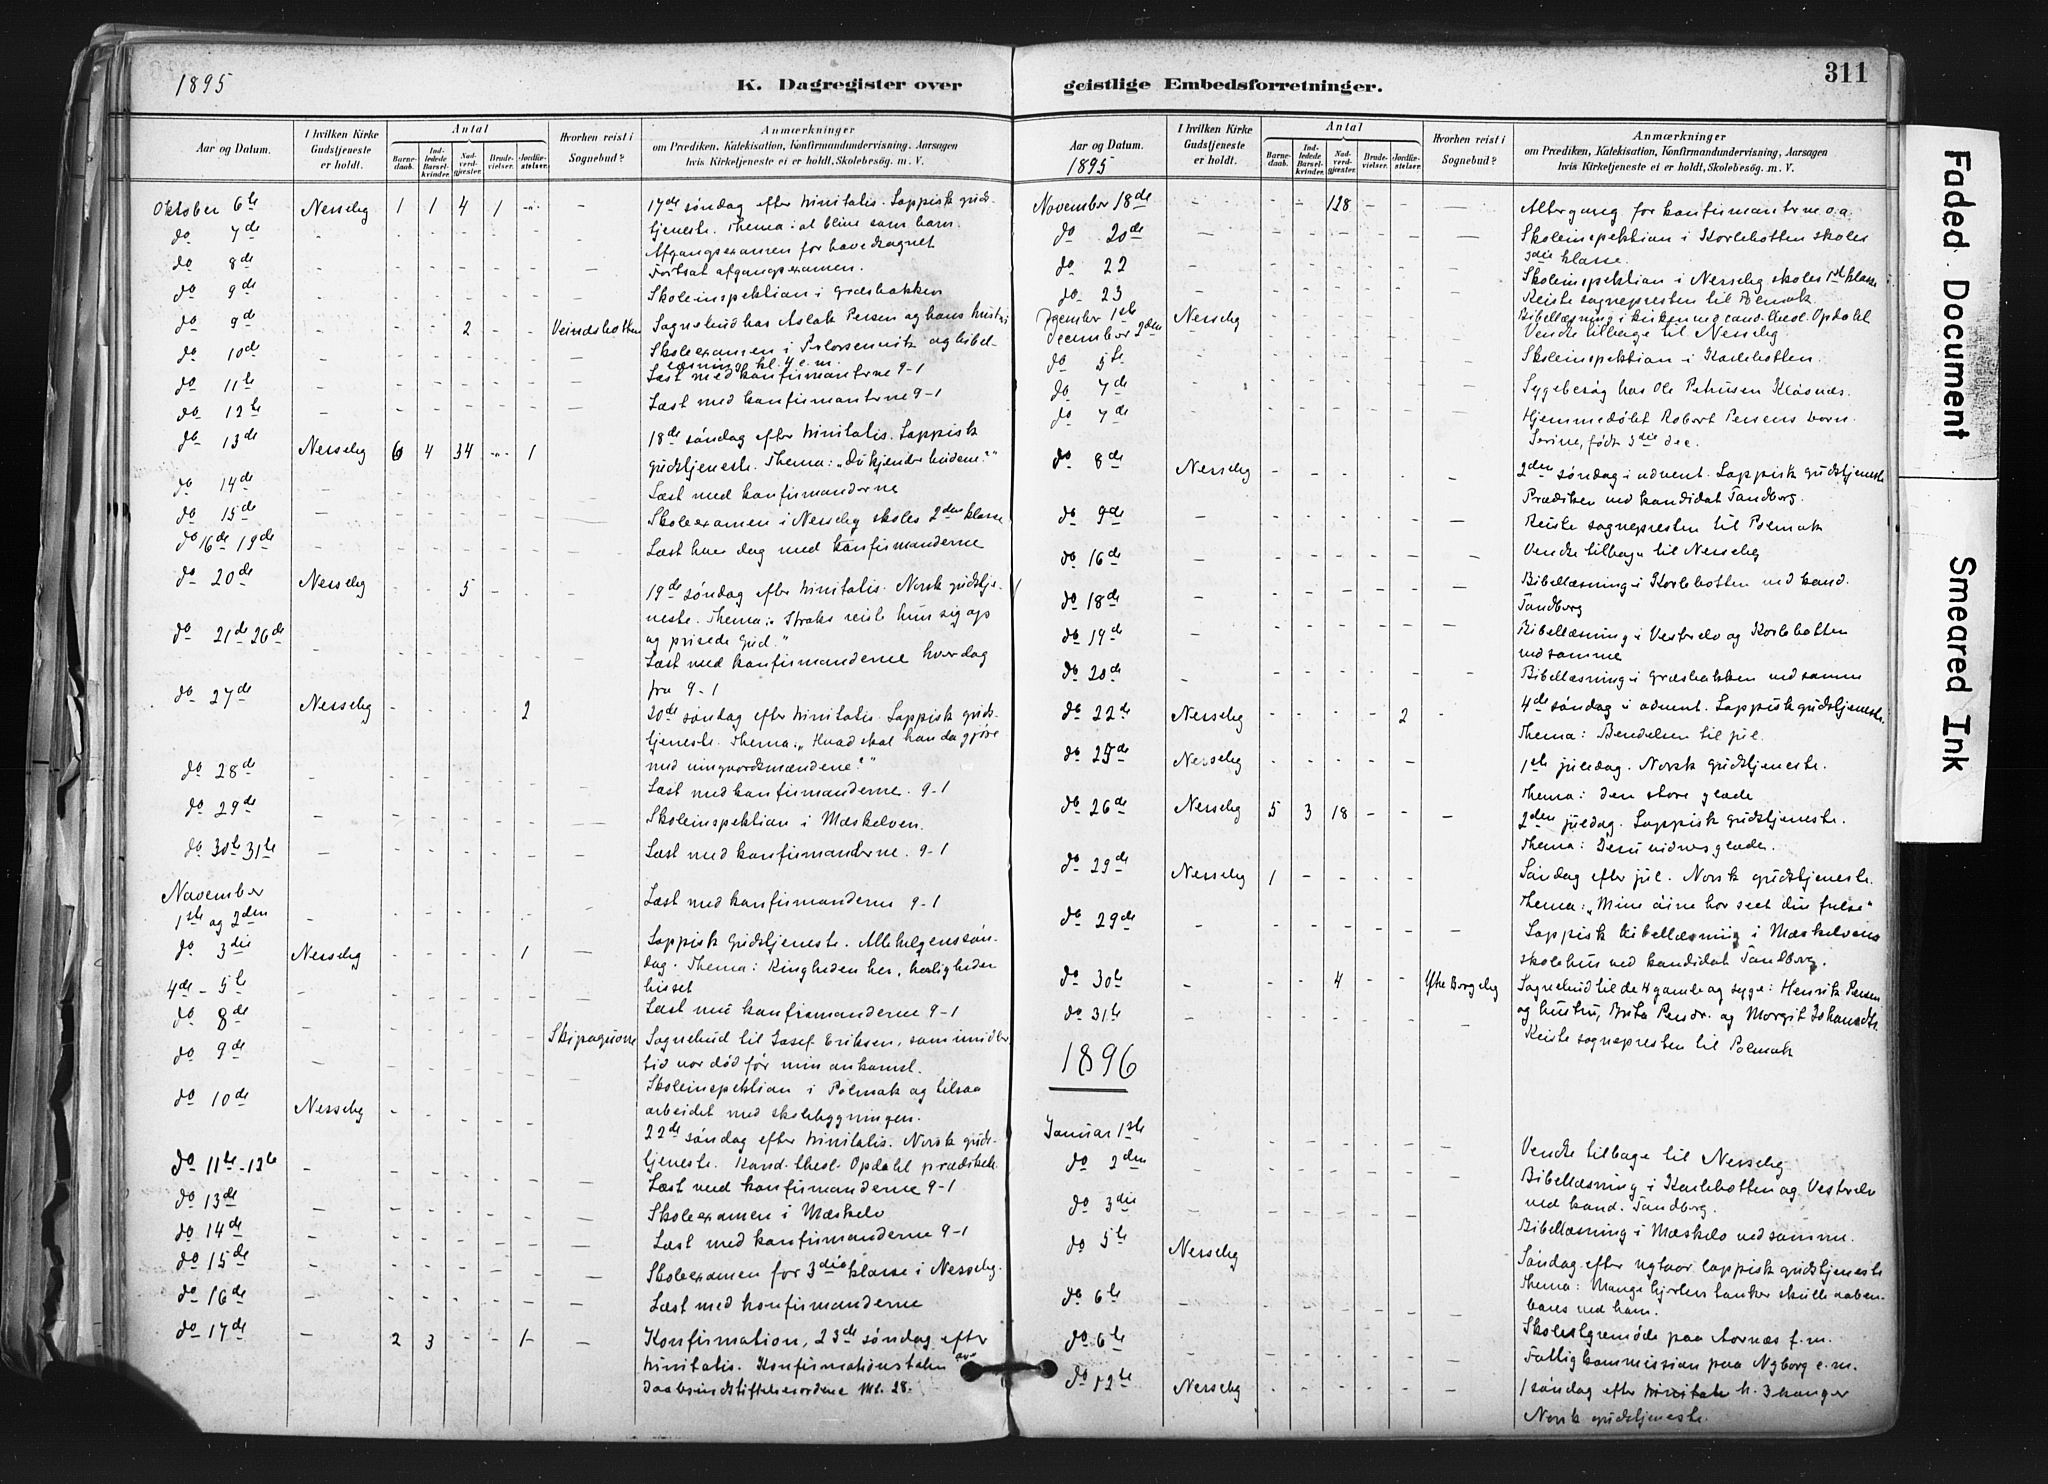 1895
K. Dagregister over
geistlige Embedsforretninger.
311
Aar og Datum.
I hvilken Kirke Gudstjeneste er holdt.
Antal
Barne-daab.
Ind-ledede Barsel-kvinder.
Nad-verd-gjæster.
Brude-vielser.
Jordfæ-stelser.
Hvorhen reist i Sognebud?
Anmærkninger
om Prædiken, Katekisation, Konfirmandundervisning, Aarsagen
hvis Kirketjeneste ei er holdt, Skolebesög. m. V.
Oktober 6te Nesseby 1 1 4 1 - - 17de søndag efter trinitatis. Lappisk guds-
tjeneste. Thema: at blive som barn.
do 7de Afgangsexamen for hovedsognet
do 8de Fortsat afgangsexamen.
do 9de Skoleinspektion i Græsbakken
do 9de 2 Veinesbotten Sognebud hos Aslak Persen og hans hustru
do 10de Skoleexamen i og bibel-
læsning kl. 4 e.m.
do 11te Læst med konfirmanterne 9-1
do 12te Læst med konfirmanterne 9-1
do 13de Nesseby 6 4 34 - 1 18de søndag efter trinitatis. Lappisk
gudstjeneste. Thema: "Du kjender budene?"
do 14de Læst med konfirmanderne
do 15de Skoleexamen i Nesseby skoles 2den klasse
do 16de 19de Læst hver dag med konfirmanderne
do 20de Nesseby 5 19de søndag efter trinitatis. Norsk gudstje-
neste. Thema: Straks reiste hun sig op
og prisede Gud"
do 21de 26de Læst med konfirmanderne hver dag
fra 9-1
do 27de Nesseby 2 20de søndag efter trinitatis. Lappisk guds-
tjeneste. Thema: "Hvad skal han da gjøre
med vingaardsmændene?"
do 28de Læst med konfirmanderne. 9-1
do 29de Skoleinspektion i Mæskelven.
do 30te 31te Læst med konfirmanterne. 9-1
November
1ste og 2den Læst med konfirmanderne 9-1
do 3die Nesseby 1 Lappisk gudstjeneste. Allehelgenssøn-
dag. Thema: Ringheden her, herligheden
hisset
4de - 5te Læst med konfirmanderne 9-1
do 8de Skipagurre Sognebud til Josef Eriksen, som imidler-
tid var død før min ankomst.
do 9de Skoleinspektion i Polmak og tilsaa
arbeidet med skolebygningen.
do 10de Nesseby 22de søndag efter trinitatis. Norsk guds-
tjeneste. Kand. theol. Opdahl prædikede
do 11te-12te Læst med konfirmanderne 9-1
do 13de Skoleexamen i Mæskelv
do 14de Læst med konfirmanderne 9-1
do 15de Skoleexamen for 3die klasse i Nesseby.
do 16de Læst med konfirmanderne
do 17de 2 3 - - 1 - Konfirmation, 23de søndag efter
trinitatis. Konfirmationstalen over
daabsindstiftelsesordene Mt. 28.
Aar og Datum.
1895
I hvilken Kirke Gudstjeneste er holdt.
Antal
Barne-daab.
Ind-ledede Barsel-kvinder.
Nad-verd-gjæster.
Brude-vielser.
Jordfæ-stelser.
Hvorhen reist i Sognebud?
Anmærkninger
om Prædiken, Katekisation, Konfirmandundervisning, Aarsagen
hvis Kirketjeneste ei er holdt, Skolebesög. m. V.
November 18de 128 Altergang for konfirmanterne o.a.
do 20de Skoleinspektion i Karlebotten skoles
3die klasse.
do 22 Skoleinspektion i Nesseby skoles 1ste klasse
do 23 Reiste sognepresten til Polmak.
December 1ste Nesseby Bibellæsning i kirken med cand. theol. Opdahl
December 2den Vendte tilbage til Nesseby
do 5te Skoleinspektion i Karlebotten.
do 7de Sygebesøg hos Ole Petrusen Kløsnæs.
do 7de Hjemmedøbt Robert Persens barn.
Serine, født 3die dec.
do 8de Nesseby 2den søndag i advent. Lappisk gudstjeneste
Prædiken ved kandidat Tandberg.
do 9de Reiste sognepresten til Polmak
do 16de Vendte tilbage til Nesseby
do 18de Bibellæsning i Karlebotten ved kand.
Tandberg
do 19de Bibellæsning i Vesterelv og Karlebotten
ved samme
do 20de Bibellæsning i Græsbakken ved samme
do 22de Nesseby 2 4de søndag i advent. Lappisk gudstjeneste.
Thema: Beredelsen til jul.
do 25de Nesseby 1ste juledag. Norsk gudstjeneste.
Thema: den store glæde
do 26de Nesseby 5 3 18 2den juledag. Lappisk gudstjeneste.
Thema: Jesu vidnes glæde.
do 29de Nesseby 1 Søndag efter jul. Norsk gudstjeneste.
Thema: "Mine øine har seet din frelse"
do 29de Lappisk bibellæsning i Mæskelvens
skolehus ved kandidat Tandberg.
do 30te 4 Ytre Bergeby Sognebud til de 4 gamle og syge: Henrik Persen
og hustru, Brita Persdr. og Margit Johansdtr.
do 31te Reiste sognepresten til Polmak
1896
Januar 1ste Vendte tilbage til Nesseby
do 2den Bibellæsning i Karlebotten og Vesterelv
ved kand. Tandberg.
do 3die Bibellæsning i Mæskelv ved samme.
do 5te Nesseby Søndag efter nytaar lappisk gudstjeneste
Thema: Mange hjerters tanker skulle aaben-
bares ved ham.
do 6te Skolestyremøde paa Aornæs f.m.
do 6te Fattigkommission paa Nyborg e.m.
do 12te Nesseby 1 søndag efter h. 3 konger
Norsk gudstjeneste.
Faded Document
Smeared Ink